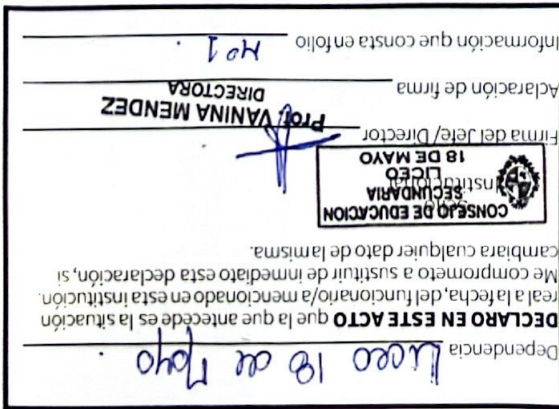 Dependencia Liceo 18 de Mayo.
DECLARO EN ESTE ACTO que la que antecede es la situación
real a la fecha, del funcionario/a mencionado en esta institución.
Me comprometo a sustituir de inmediato esta declaración, si
cambiara cualquier dato de la misma.
CONSEJO DE EDUCACION
SECUNDARIA
LICEO
18 DE MAYO
Firma del Jefe/ Director
Prof. VANINA MENDEZ
DIRECTORA
Aclaración de firma
Información que consta en folio Nº 1.